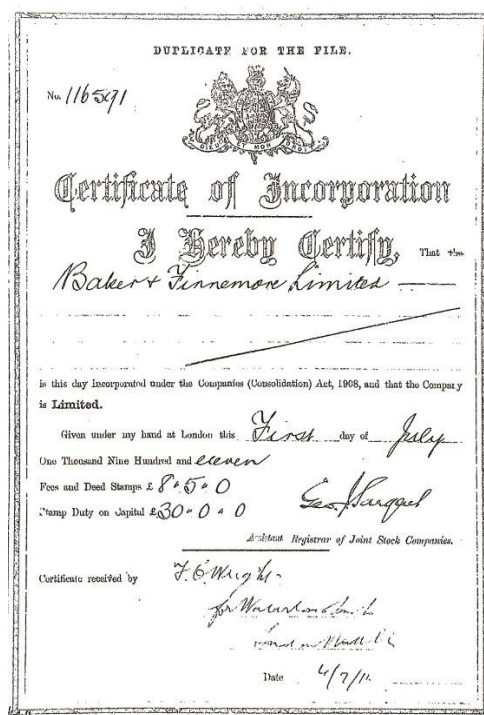 DUPLICATE FOR THE FILE.
No. 116591
DIEU ET MON DROIT
Certificate of Incorporation
I Hereby Certify, That the
Baker & Finnemore Limited
is this day Incorporated under the Companies (Consolidation) Act, 1908, and that the Company
is Limited.
Given under my hand at London this First day of July
One Thousand Nine Hundred and eleven
Fees and Deed Stamps £ 8" 5" 0
Stamp Duty on Capital £ 30" 0" 0
Geo. J. Sargent
Assistant Registrar of Joint Stock Companies.
Certificate received by
for
London Wall
Date 4/7/11.